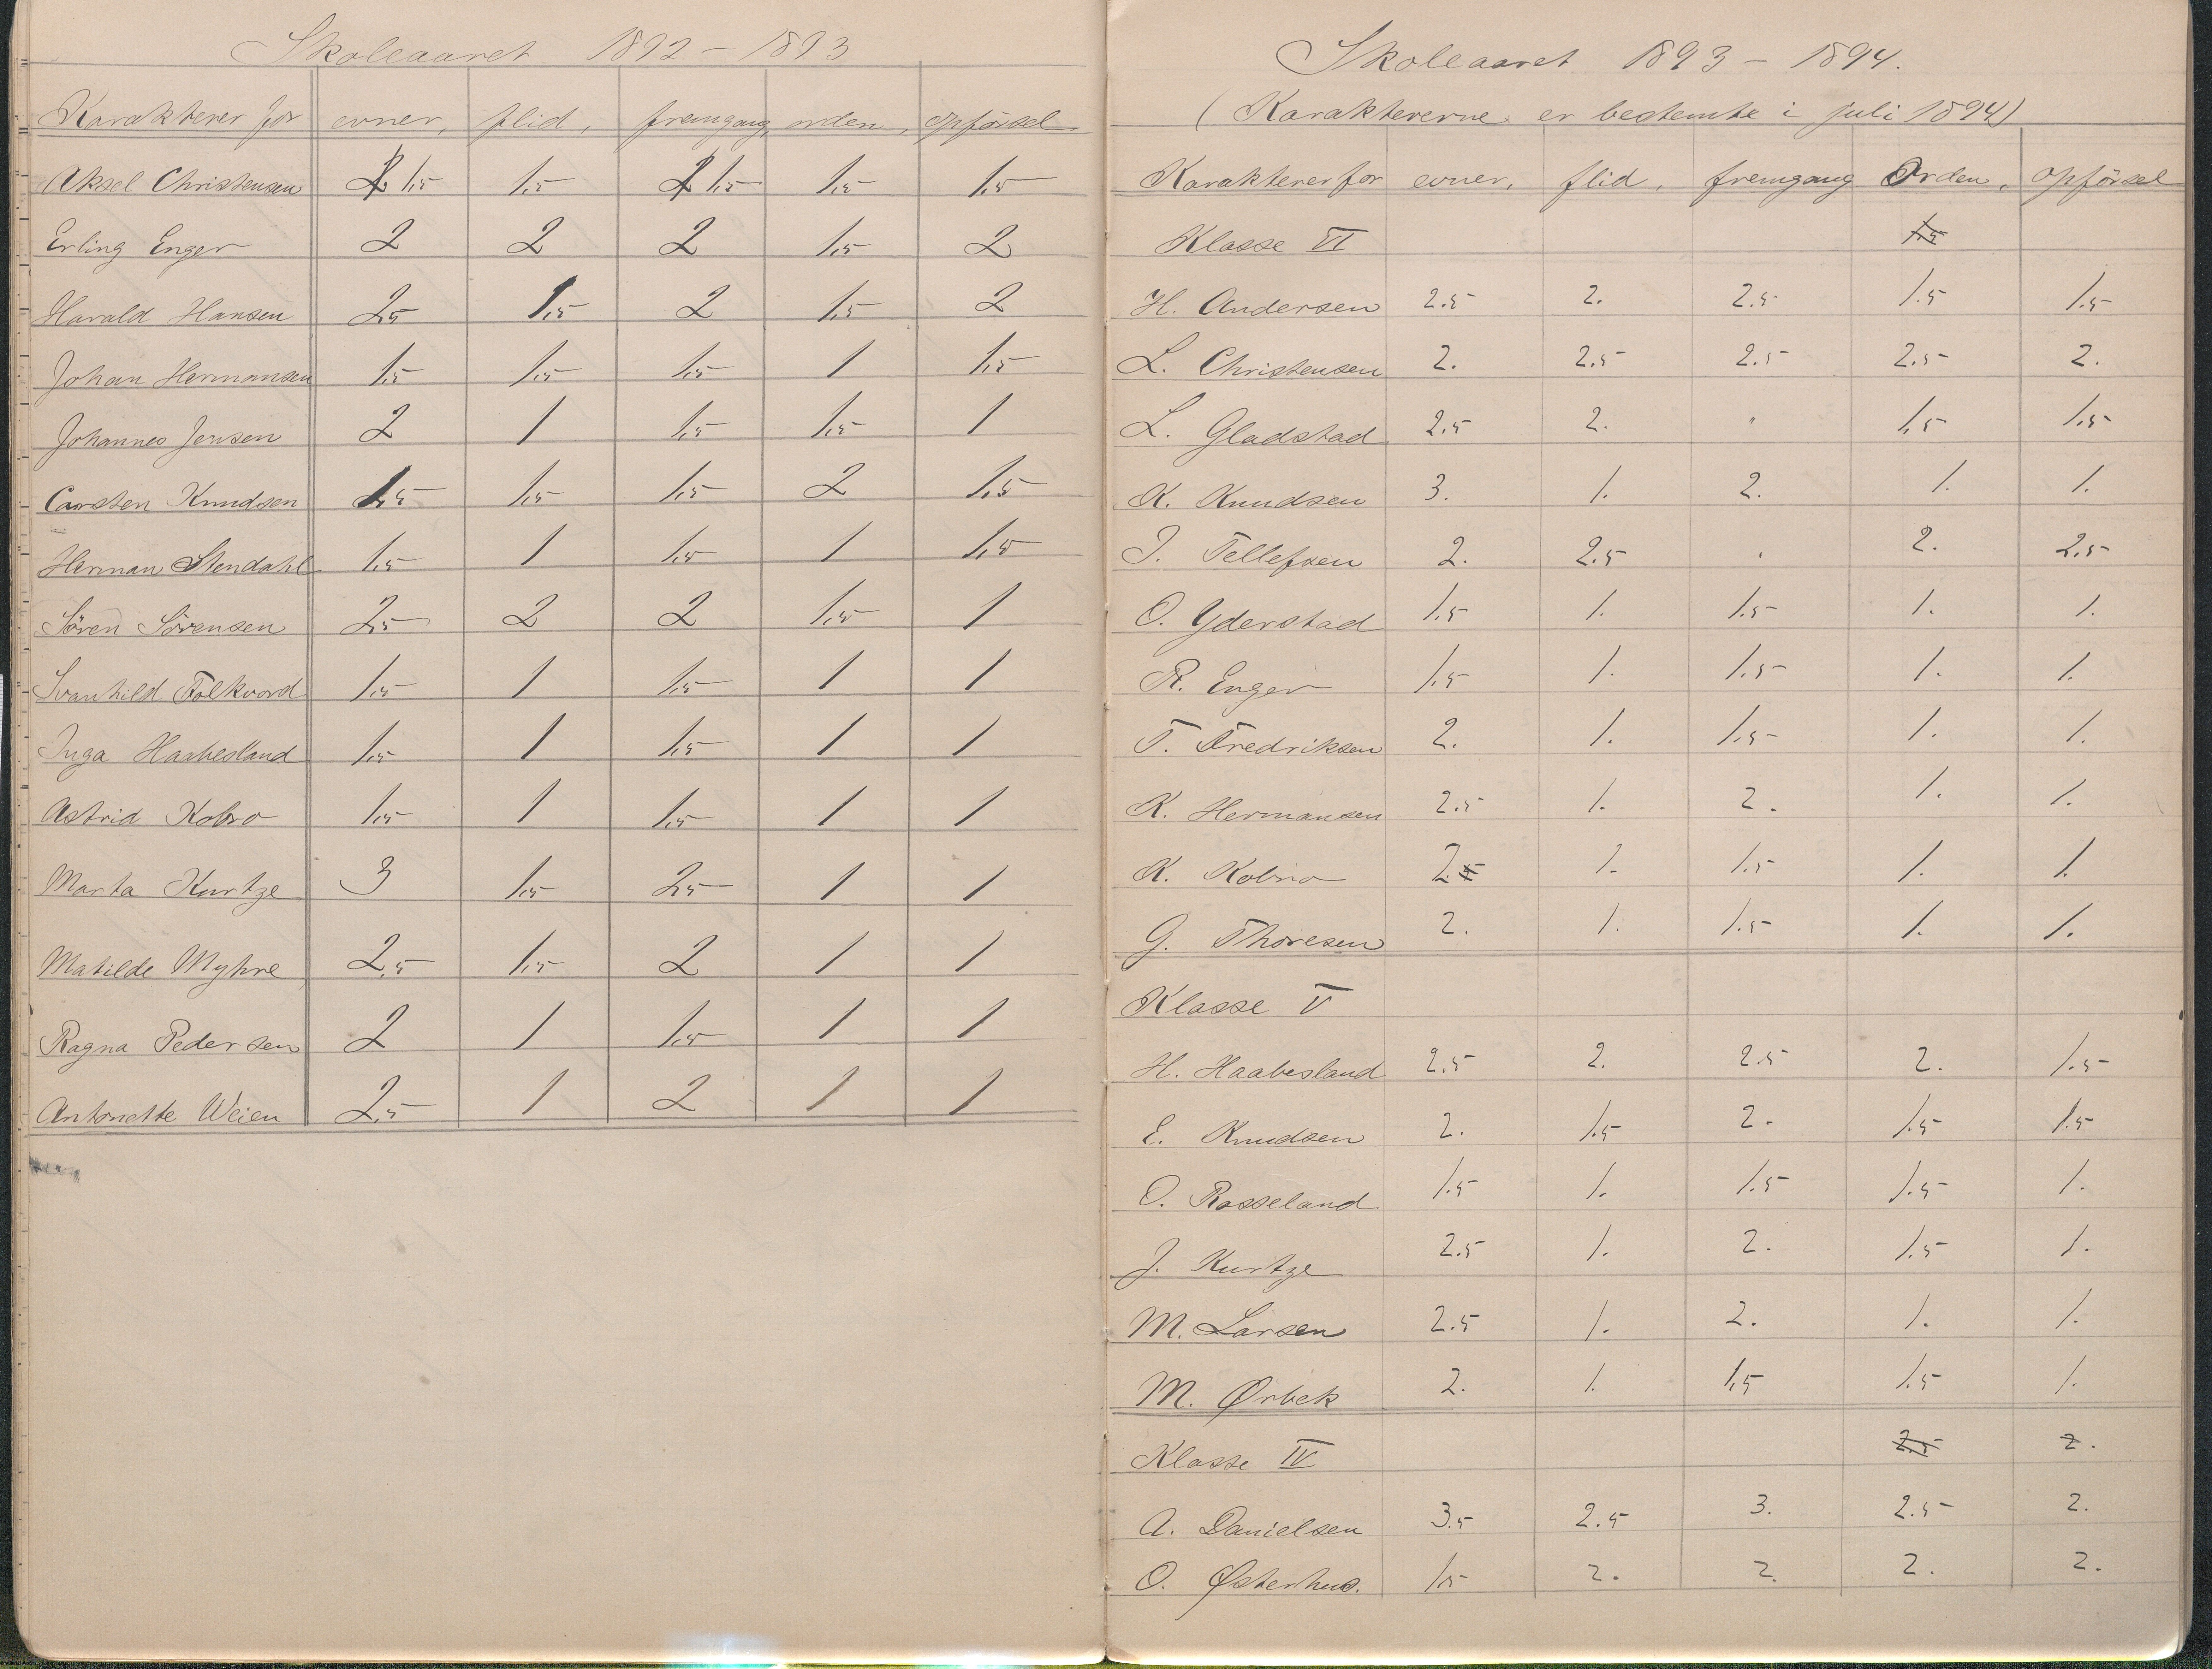 Skoleaaret 1892 – 1893
Karakterer for evner, flid, fremgang, orden, opførsel
Aksel Christensen 1,5 1,5 1,5 1,5 1,5
Erling Enger 2 2 2 1,5 2
Harald Hansen 2,5 1,5 2 1,5 2
Johan Hermansen 1,5 1,5 1,5 1 1,5
Johannes Jensen 2 1 1,5 1,5 1
Carsten Knudsen 1,5 1,5 1,5 2 1,5
Herman Stendahl 1,5 1 1,5 1 1,5
Sören Sörensen 2,5 2 2 1,5 1
Svanhild Folkvord 1,5 1 1,5 1 1
Inga Haabesland 1,5 1 1,5 1 1
Astrid Kobro 1,5 1 1,5 1 1
Marta Kurtze 3 1,5 2,5 1 1
Matilde Myhre 2,5 1,5 2 1 1
Ragna Pedersen 2 1 1,5 1 1
Antonette Weien 2,5 1 2 1 1
Skoleaaret 1893 – 1894.
(Karaktererne er bestemte i juli 1894)
Karakterer for evner, flid, fremgang Orden, opförsel
Klasse VI 1.5
H. Andersen 2.5 2. 2.5 1.5 1.5
L. Christensen 2. 2.5 2.5 2.5 2.
L. Gladstad 2.5 2. " 1,5 1.5
K. Knudsen 3. 1. 2. 1. 1.
J. Tellefsen 2. 2.5 . 2. 2.5
O. Yderstad 1.5 1. 1.5 1. 1.
R. Enger 1.5 1. 1.5 1. 1.
T. Fredriksen 2. 1. 1.5 1. 1.
K. Hermansen 2.5 1. 2. 1. 1.
K. Kobro 2. 1. 1.5 1. 1.
G. Thoresen 2. 1. 1.5 1. 1.
Klasse V
H. Haabesland 2.5 2. 2.5 2. 1.5
E. Knudsen 2. 1.5 2. 1.5 1.5
O. Rosseland 1.5 1. 1.5 1.5 1.
J. Kurtze 2.5 1. 2. 1.5 1.
M. Larsen 2.5 1. 2. 1. 1.
M. Ørbek 2. 1. 1.5 1.5 1.
Klasse IV 2.5 2.
A. Danielsen 3.5 2.5 3. 2.5 2.
O. Østerhus. 1.5 2. 2. 2. 2.